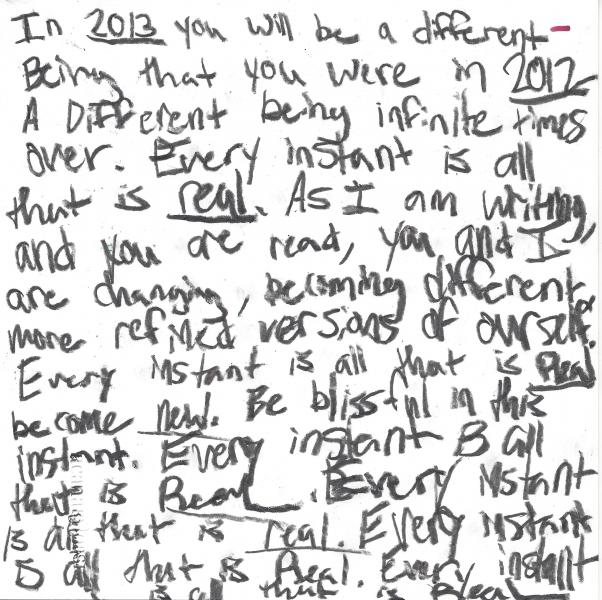 In 2013 you will be a different
Being that you were in 2012
A Different being infinite times
over. Every instant is all
that is real. As I am writing,
and you are read, you and I
are changing, becoming different or
more refined versions of ourself.
Every instant is all that is Real
become new. Be blissful in this
instant. Every instant is all
that is Real. Every instant
is all that is real. Every instant
is all that is Real. Every instant
is all that is Real